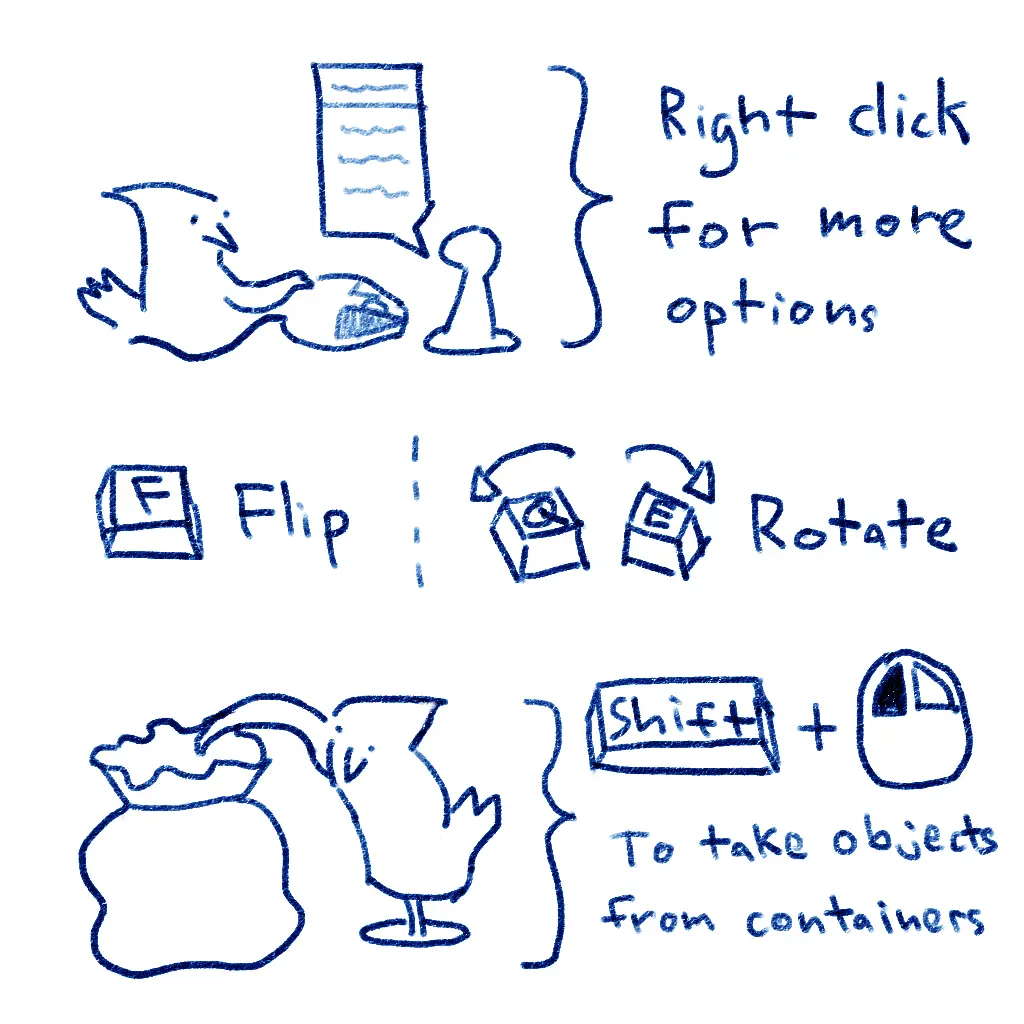 Right click
for more
options
F Flip Q E Rotate
Shift +
To take objects
from containers